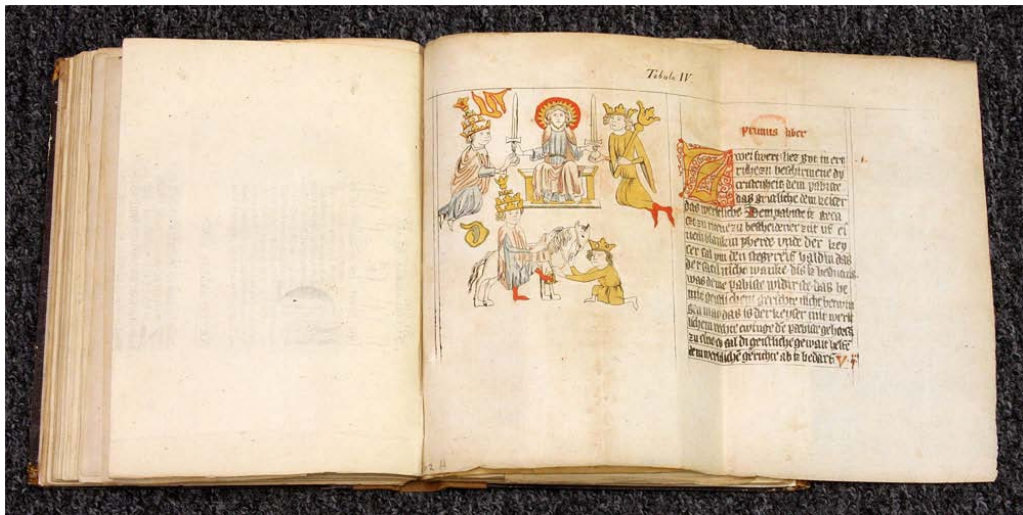 Tabula IV.
primus liber
Zwei swert liez got in ert
riche zu beschirmene dy
cristenheit dem pabiste
das geistliche dem keiser
das werltliche Dem pabiste is geca
czt zu ritene zu bescheidener zit uf ei
nem blankin pherde unde der key
ser sal ym den stegereif haldin das
der satil nicht wanke dis is
was deme pabiste widirste das he
mit geistlichem gerichte nicht betwin
gen mag das is der keyser mit werlt
lichem rechte twinge de pabiste
zu sine so sal di geistliche gewalt
dem werltliche gerichte ab is bedarf